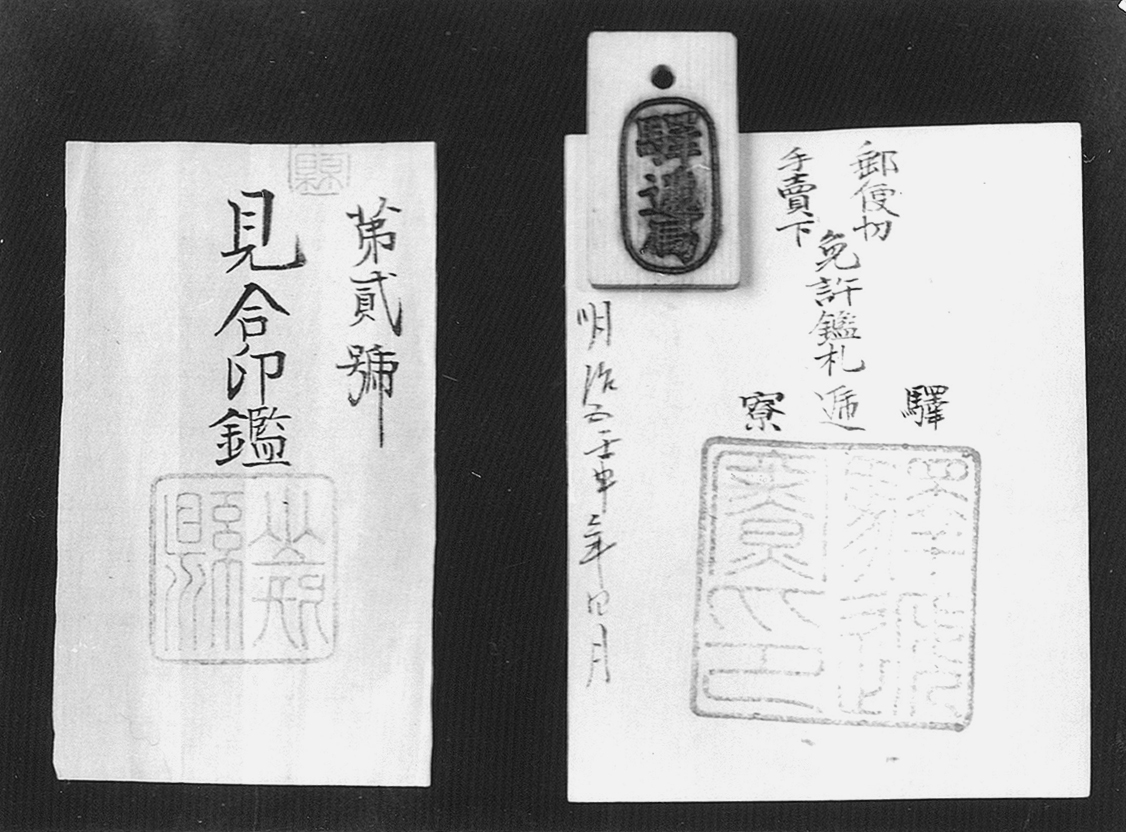 苐貳號
見合印鑑
縣
驛逓局
郵便切
手賣下
免許鑑札
驛逓寮
驛逓寮印
明治五壬申年四月